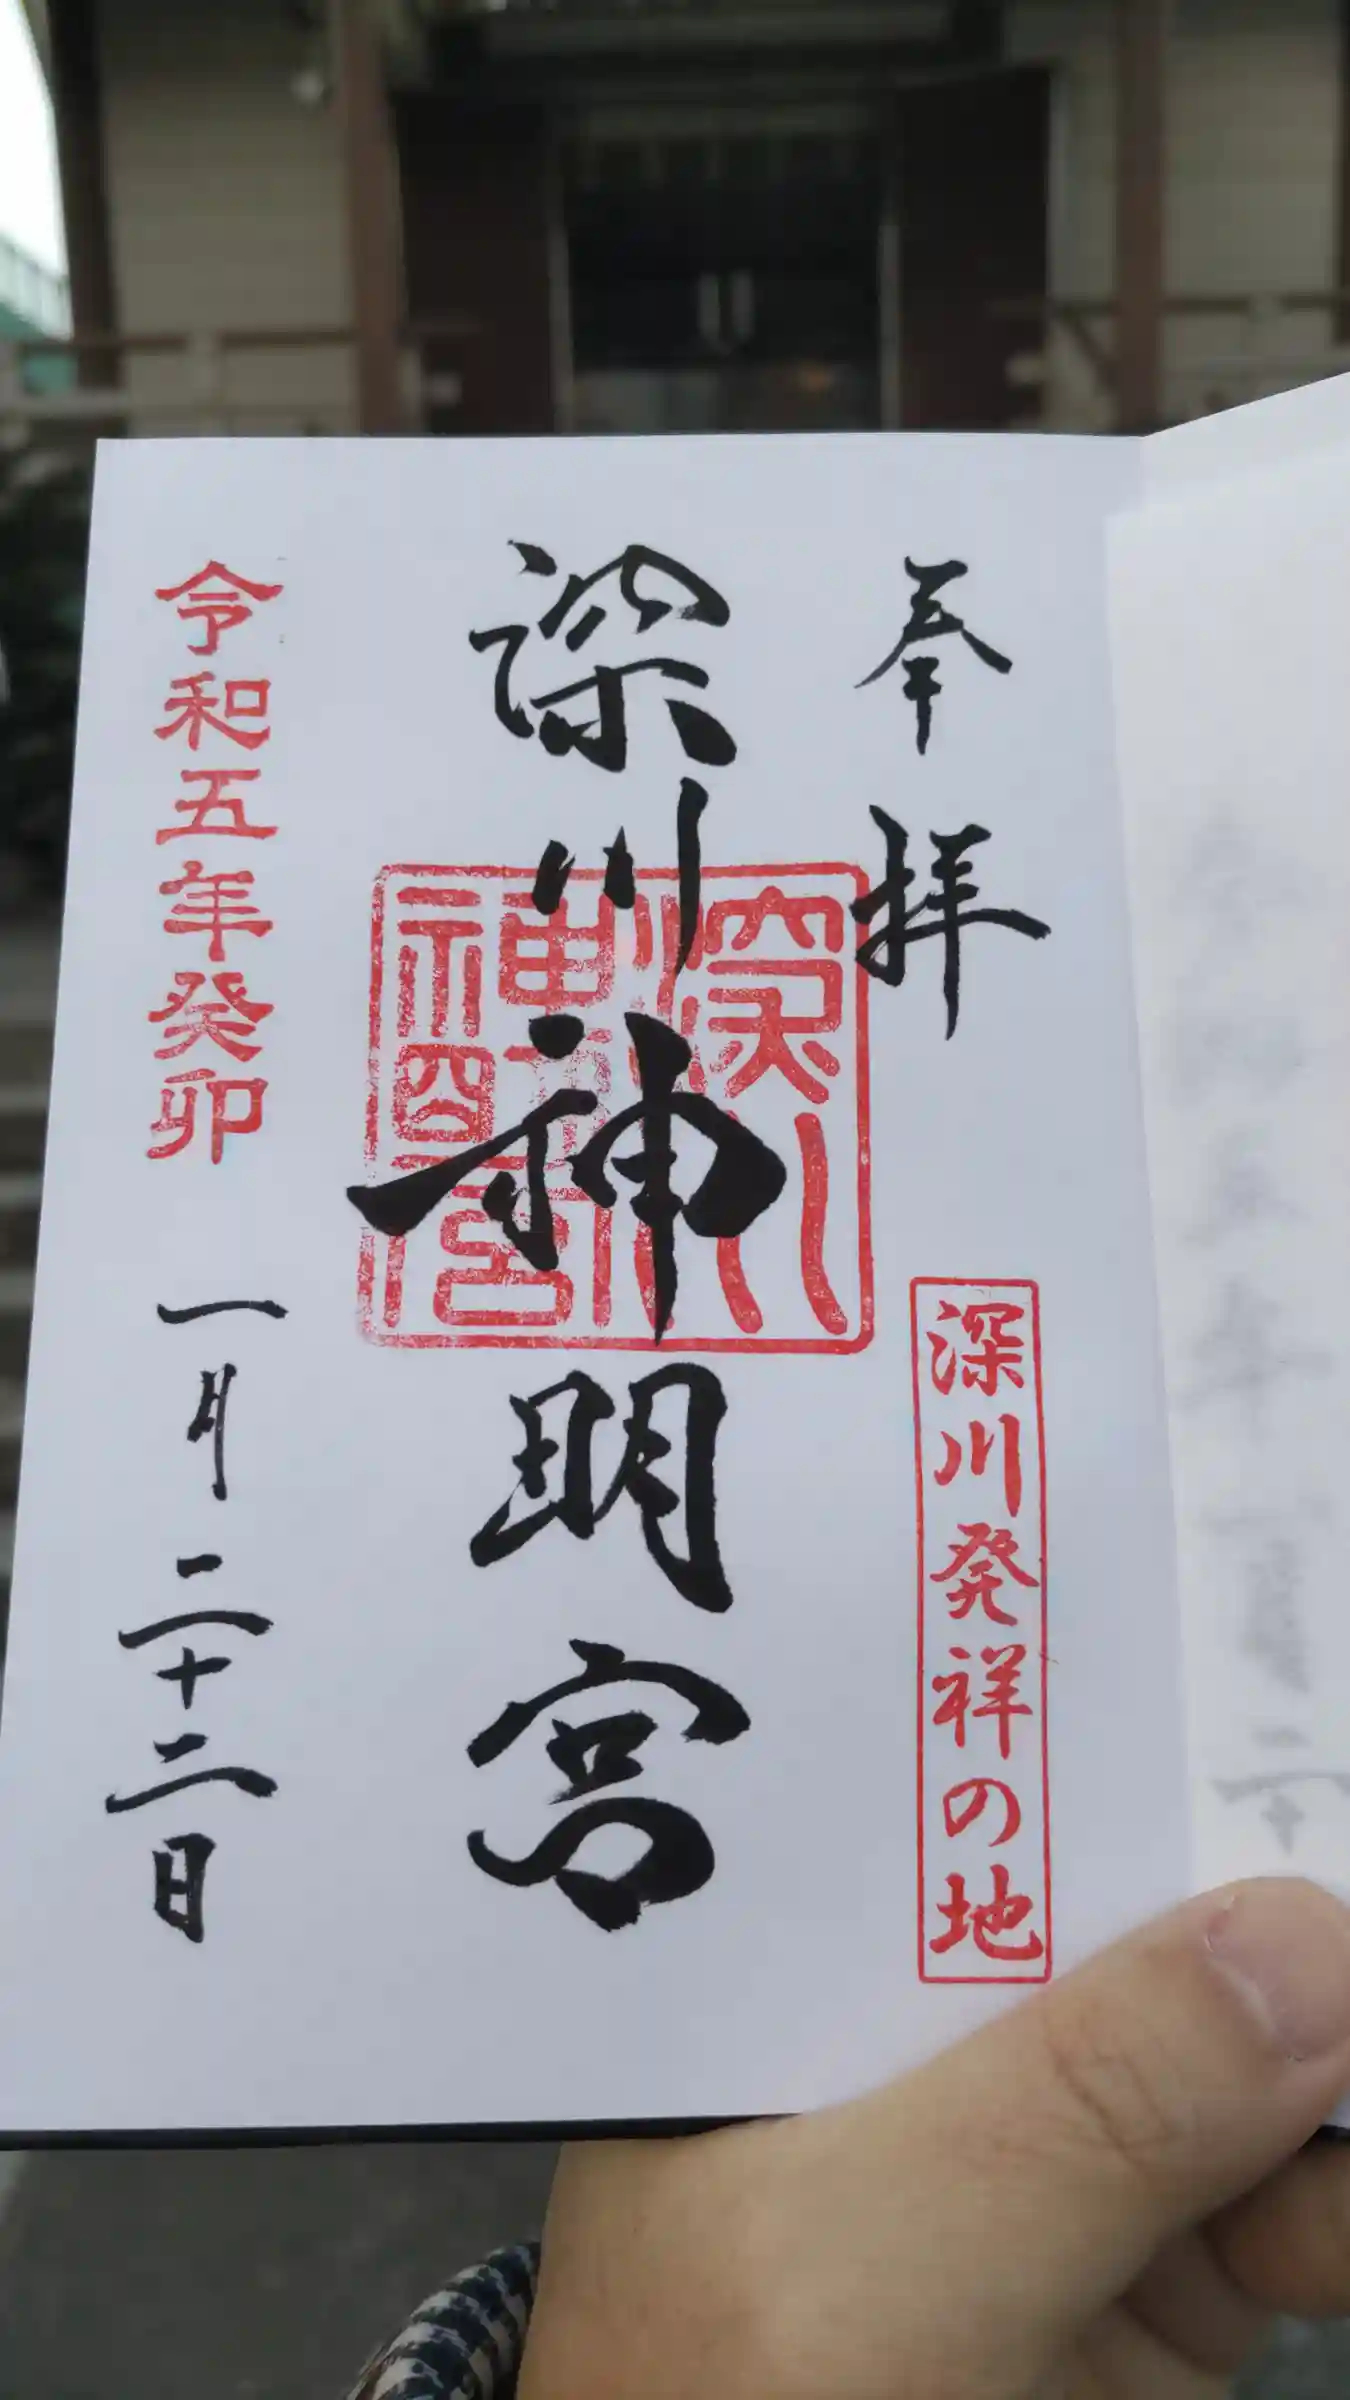 奉拝
深川発祥の地
深川神明宮
深川神明宮
令和五年癸卯 一月二十二日